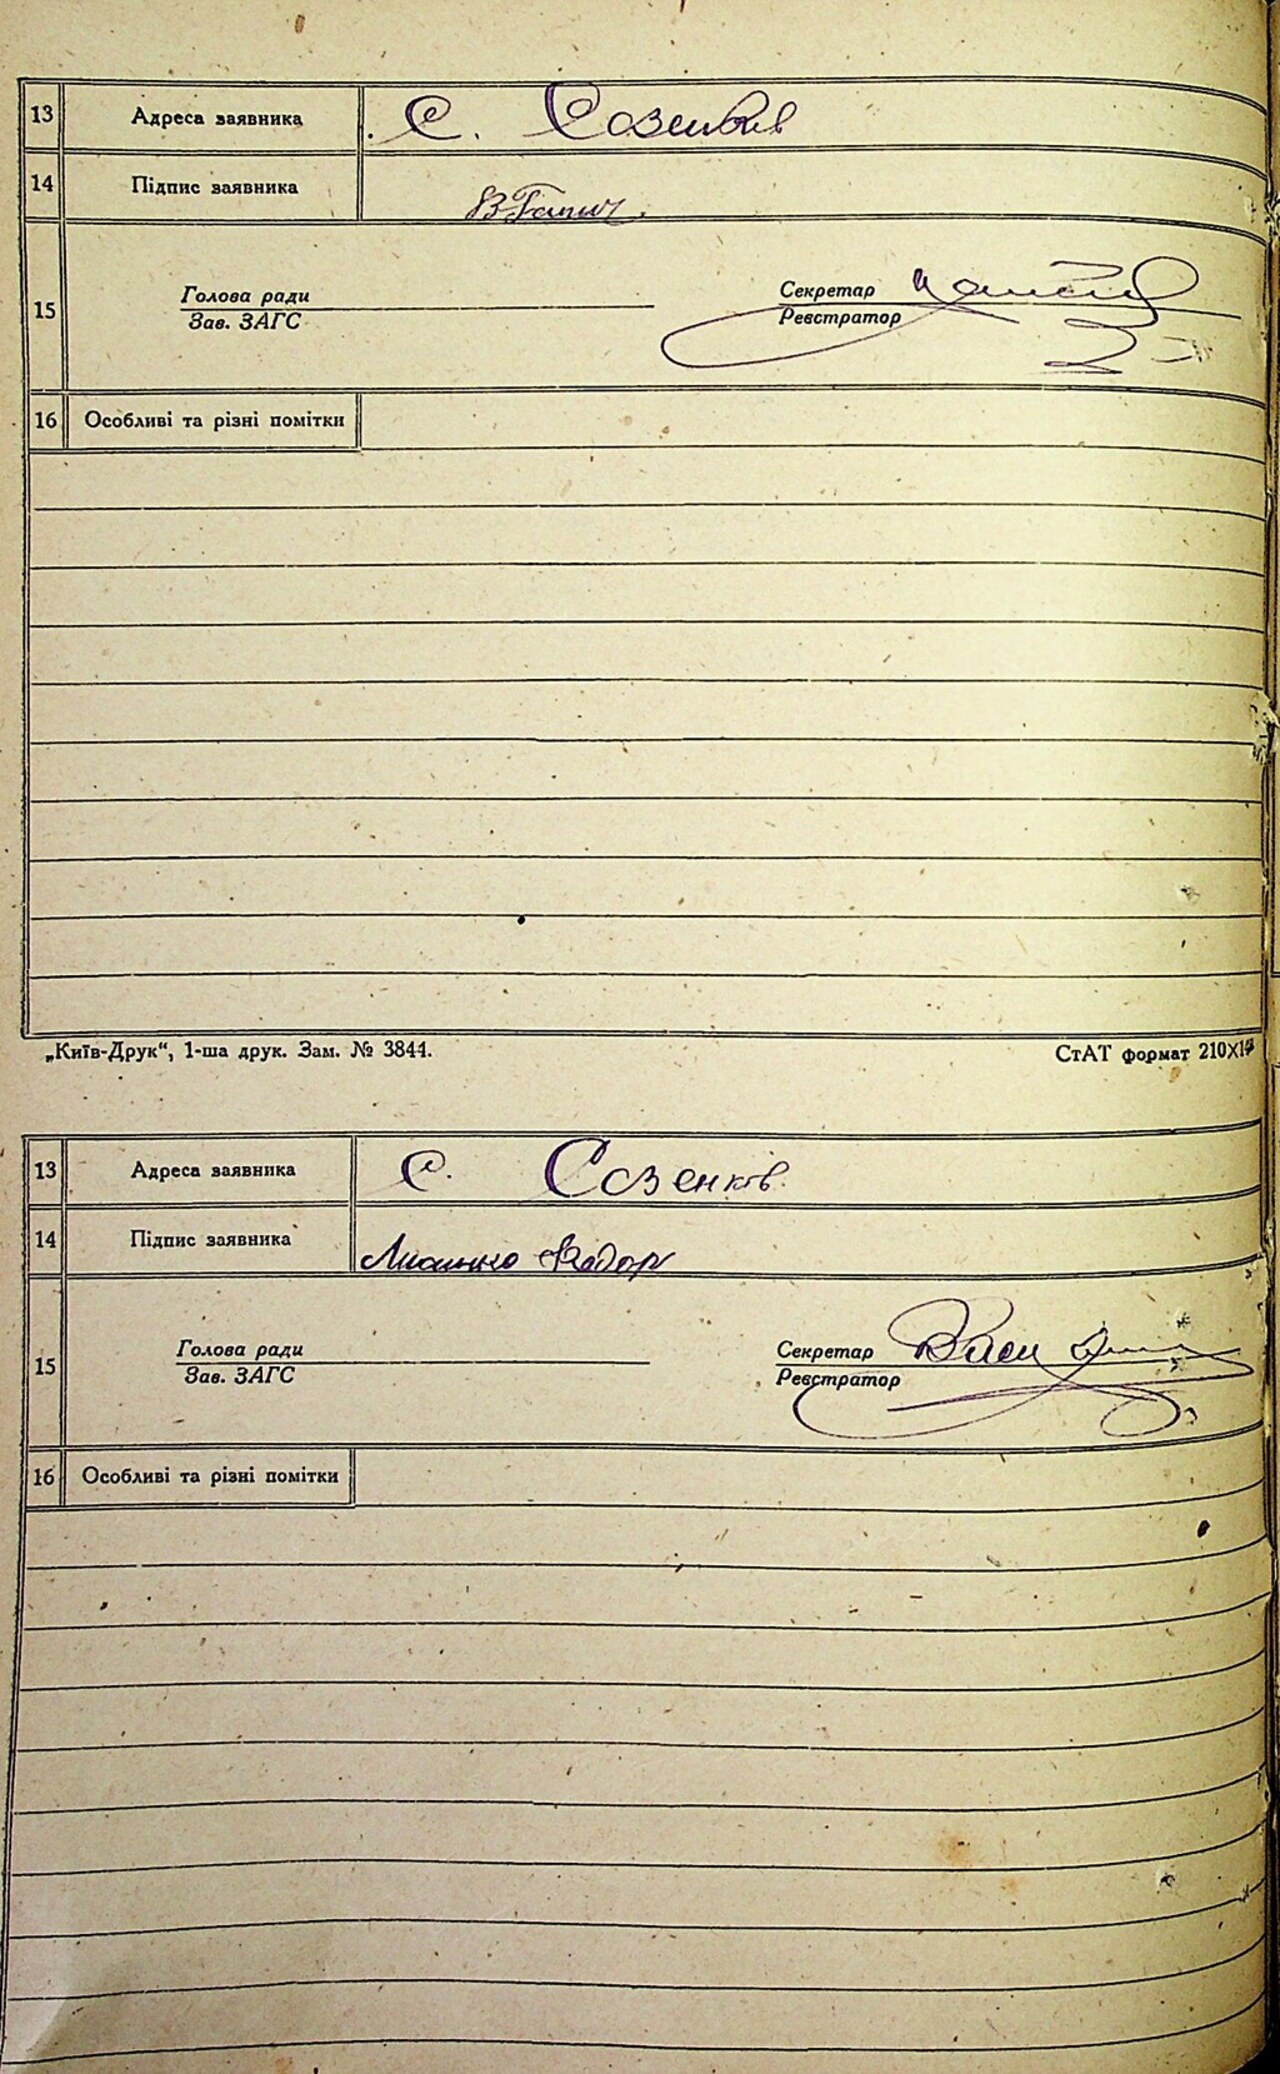 13 Адреса заявника с. Созенків
14 Підпис заявника
15 Голова ради Секретар
Зав. ЗАГС Реєстратор
16 Особливі та різні помітки
„Київ-Друк“, 1-ша друк. Зам. № 3844. СтАТ формат
13 Адреса заявника с. Созенків.
14 Підпис заявника Федор
15 Голова ради Секретар
Зав. ЗАГС Реєстратор
16 Особливі та різні помітки